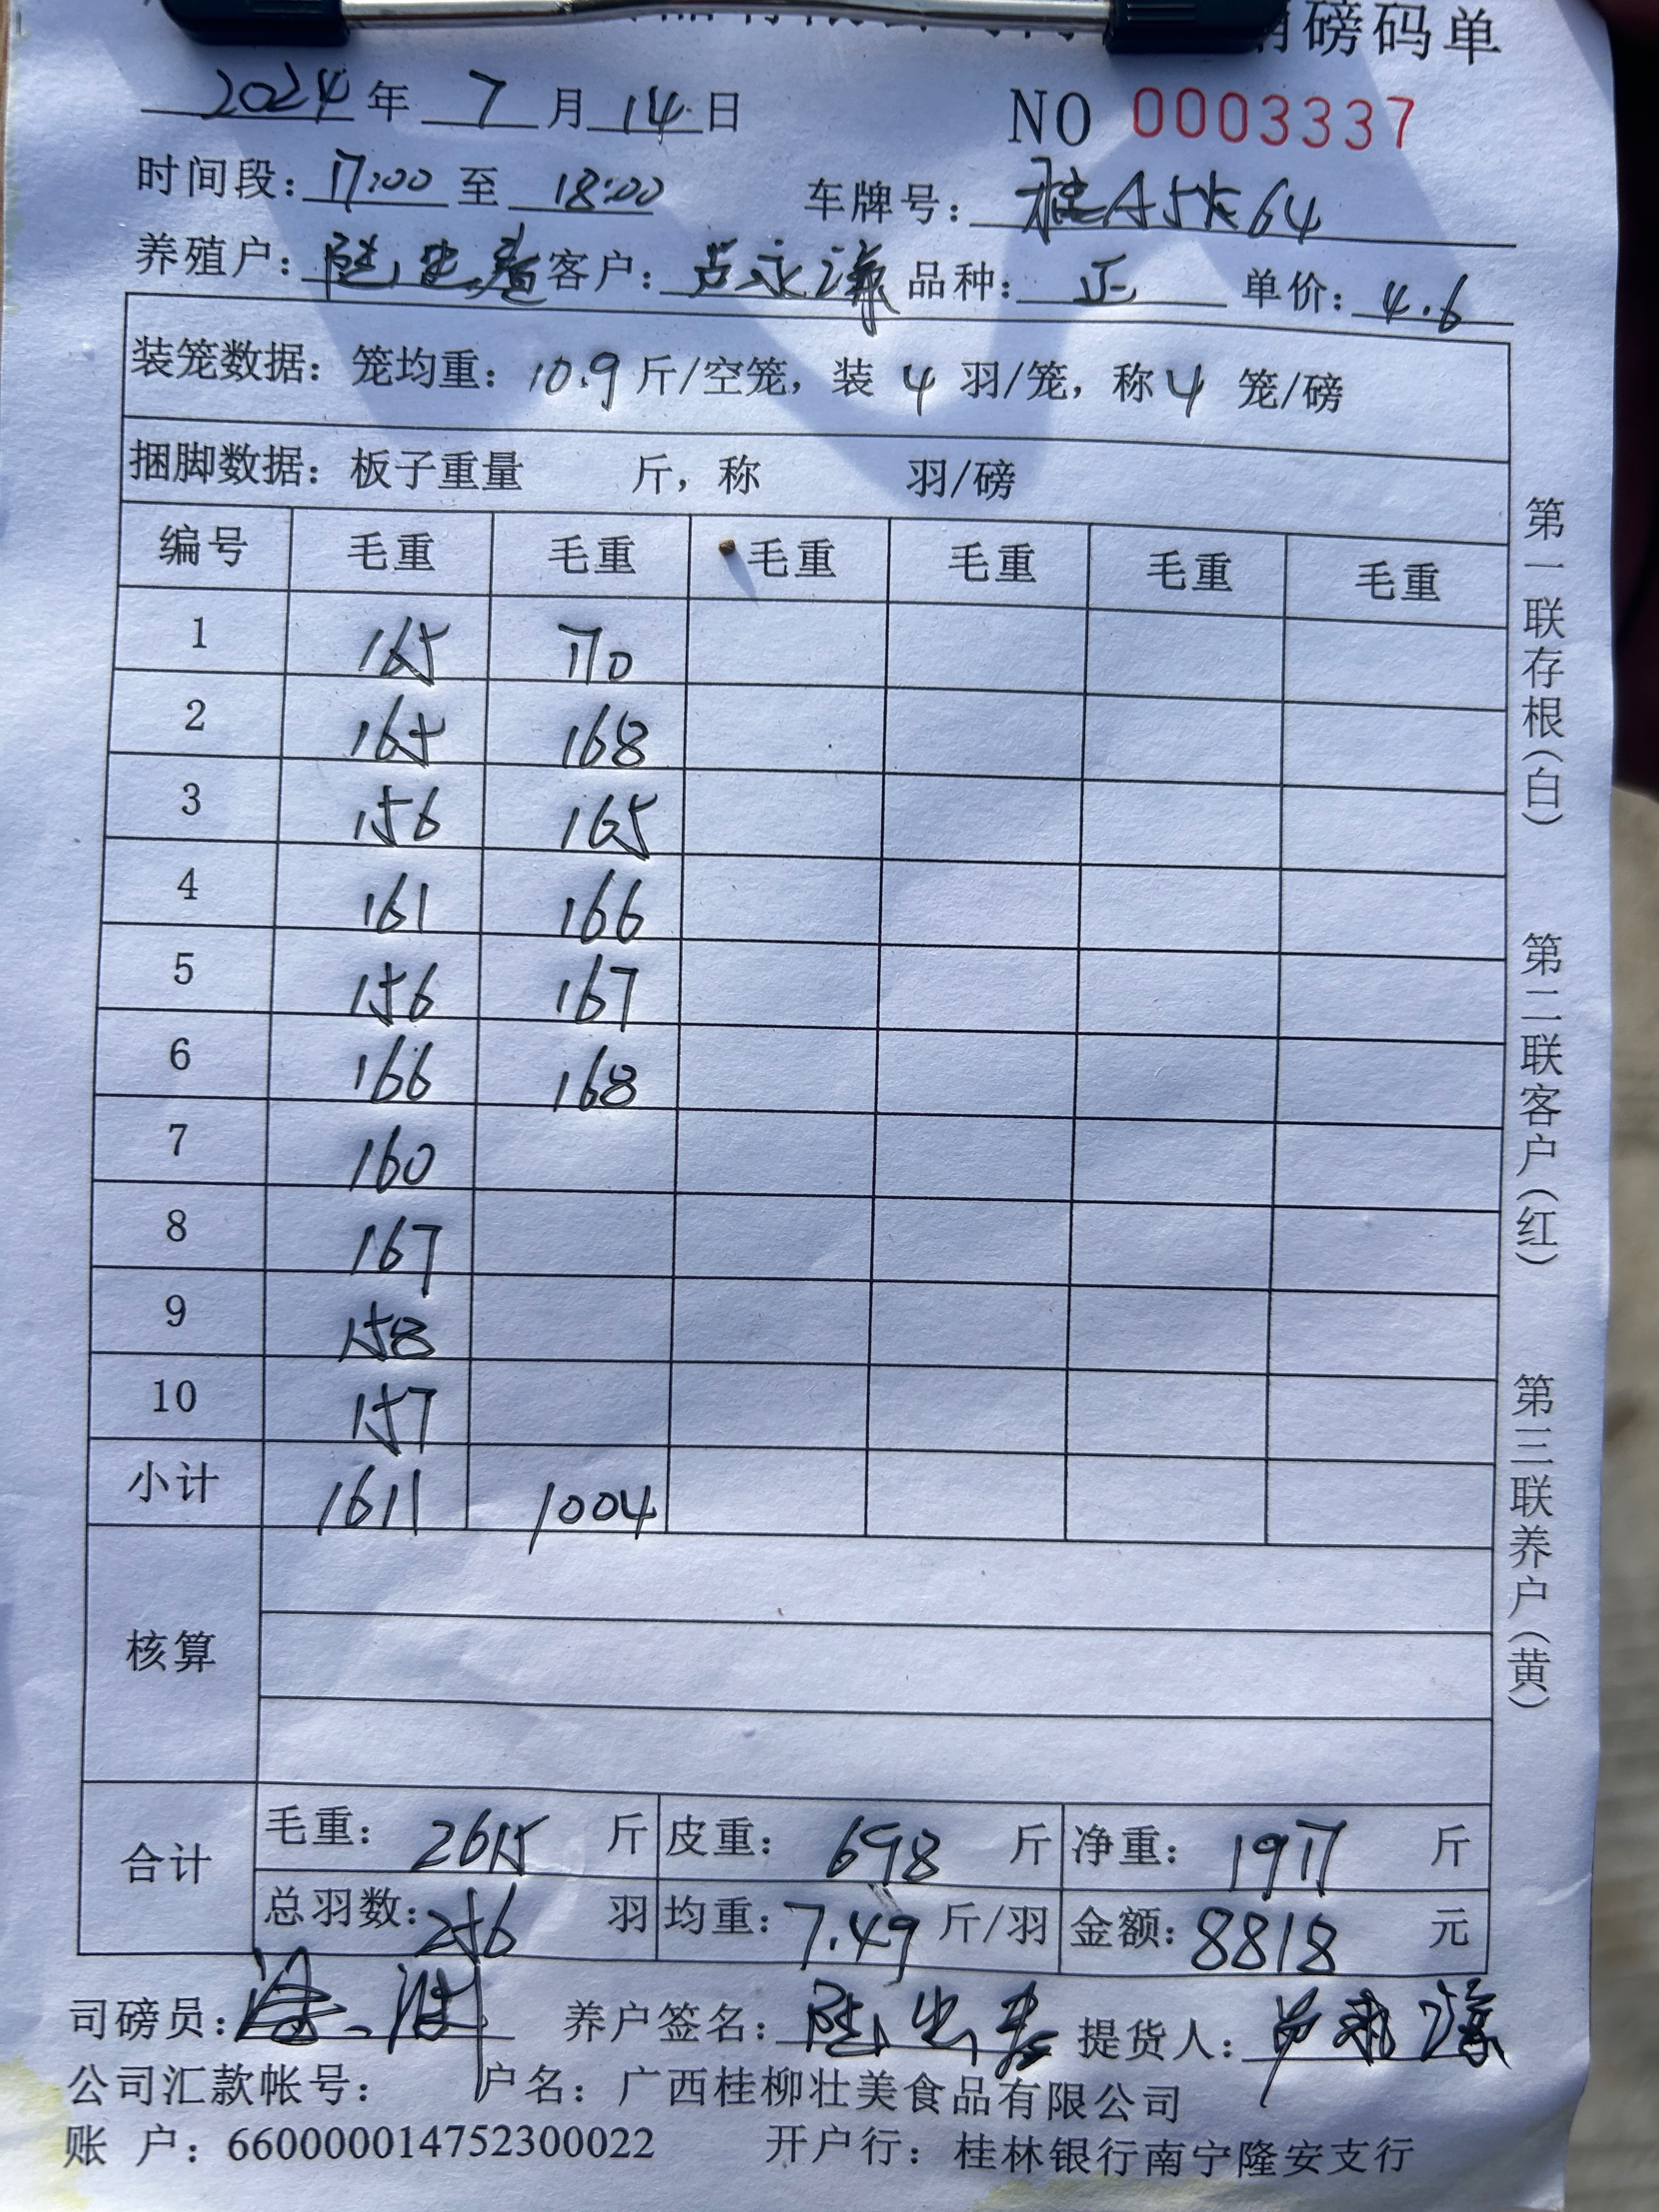 磅码单
2024年 7 月 14 日 NO 0003337
时间段: 17:00 至 18:00 车牌号:
养殖户: 客户: 品种: 正 单价: 4.6
装笼数据: 笼均重: 10.9 斤/空笼, 装 4 羽/笼, 称 4 笼/磅
捆脚数据: 板子重量 斤, 称 羽/磅
编号 毛重 毛重 毛重 毛重 毛重 毛重
1 165 170
2 165 168
3 156 165
4 161 166
5 156 167
6 166 168
7 160
8 167
9 158
10 157
小计 1611 1004
核算
合计
毛重: 2615 斤 皮重: 698 斤 净重: 1917 斤
总羽数: 256 羽 均重: 7.49 斤/羽 金额: 8818 元
司磅员: 养户签名: 提货人:
公司汇款帐号: 户名: 广西桂柳壮美食品有限公司
账 户: 660000014752300022 开户行: 桂林银行南宁隆安支行
第一联存根(白)
第二联客户(红)
第三联养户(黄)